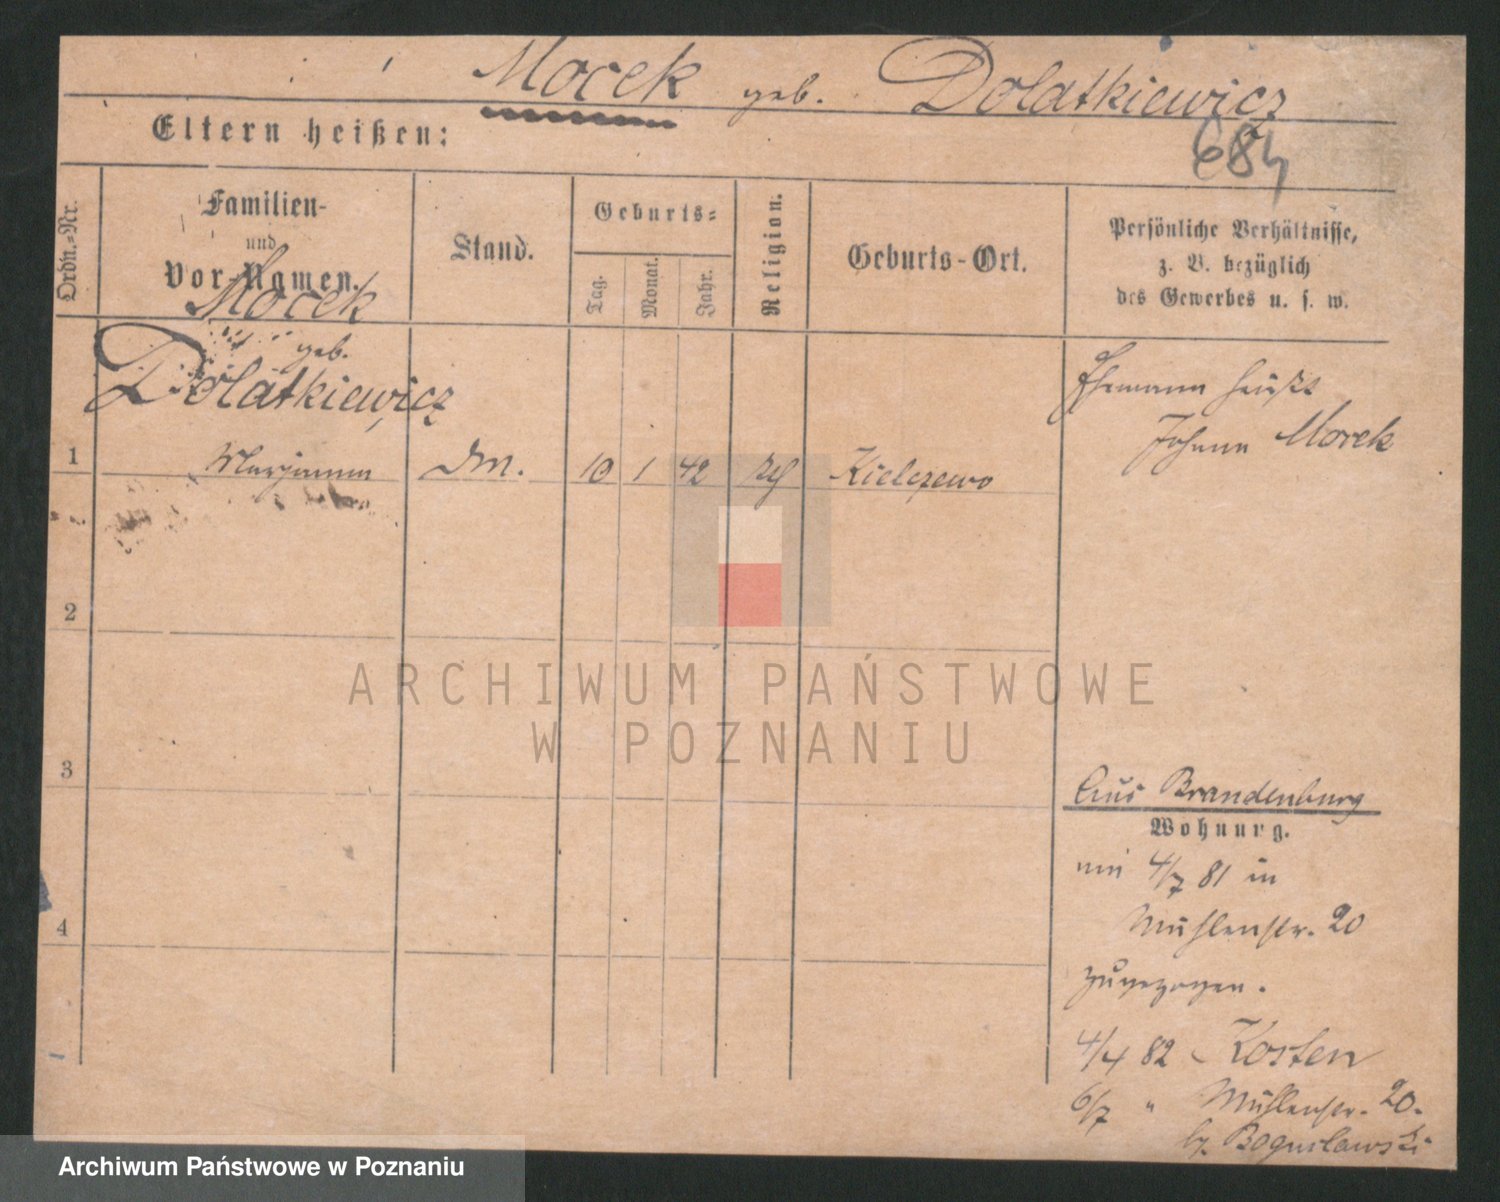 Mocek geb. Dolatkiewicz
Eltern heißen:
684
Ordn.-Nr.
Familien-
und
Vor-Namen.
Stand.
Geburts-
Tag.
Monat.
Jahr.
Religion.
Geburts-Ort.
Persönliche Verhältnisse,
z. B. bezüglich
des Gewerbes u. s. w.
Mocek
geb.
Dolatkiewicz
1 Marianna 10 1 42 Kielczewo
Ehemann heißt
Johann Mocek
2
3
4
Aus Brandenburg
Wohnung.
4/7 81 in
Mühlenstr. 20
zugezogen.
4/4 82 Kosten
6/7 " Mühlenstr. 20.
Boguslawski
ARCHIWUM PAŃSTWOWE
W POZNANIU
Archiwum Państwowe w Poznaniu